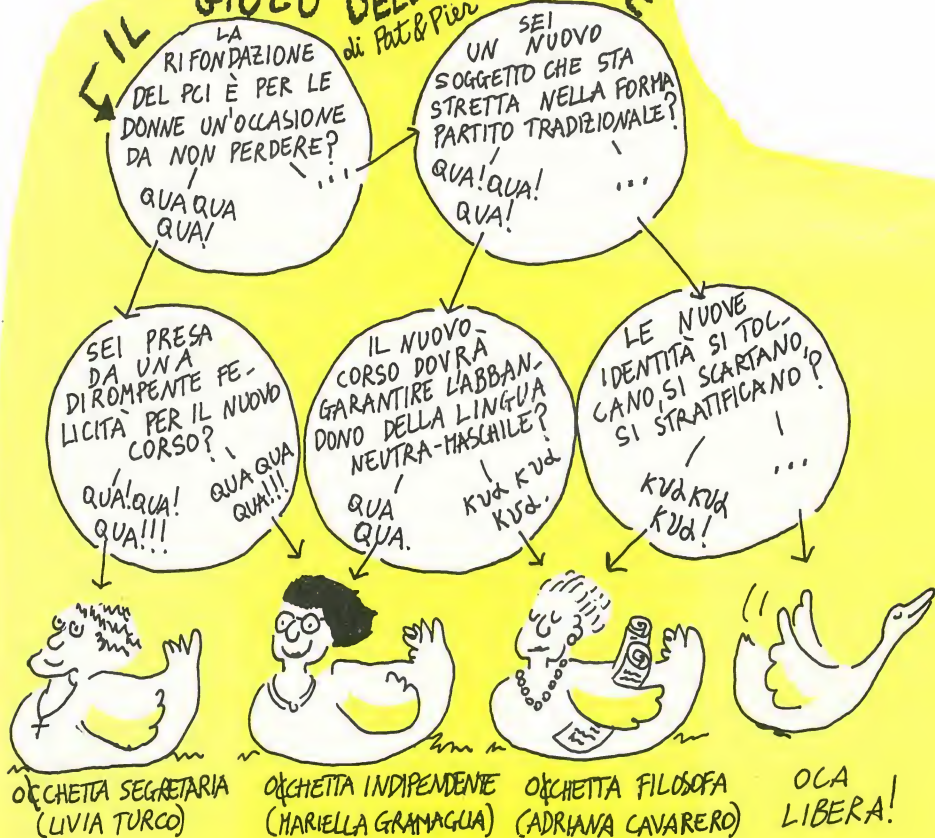 IL GIOCO DELL
di Pat & Pier
LA
RIFONDAZIONE
DEL PCI È PER LE
DONNE UN'OCCASIONE
DA NON PERDERE?
QUA QUA
QUA!
...
SEI
UN NUOVO
SOGGETTO CHE STA
STRETTA NELLA FORMA
PARTITO TRADIZIONALE?
QUA! QUA!
QUA!
...
SEI PRESA
DA UNA
DIROMPENTE FE-
LICITÀ PER IL NUOVO
CORSO?
QUA! QUA!
QUA!!!
QUA QUA
QUA!!!
IL NUOVO
CORSO DOVRÀ
GARANTIRE L'ABBAN-
DONO DELLA LINGUA
NEUTRA-MASCHILE?
QUA
QUA.
KUA KUA
KUA.
LE NUOVE
IDENTITÀ SI TOC-
CANO, SI SCARTANO,
SI STRATIFICANO?
KUA KUA
KUA!
...
OCCHETTA SEGRETARIA
(LIVIA TURCO)
OCCHETTA INDIPENDENTE
(MARIELLA GRAMAGLIA)
OCCHETTA FILOSOFA
(ADRIANA CAVARERO)
OCA
LIBERA!